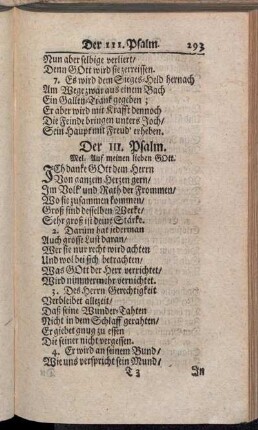 Der 111. Psalm. 293
Nun aber selbige verliert/
Denn GOtt wird sie zerreissen.
7. Es wird dem Sieges-Held hernach
Am Wege zwar aus einem Bach
Ein Gallen-Tranck gegeben;
Er aber wird mit Krafft dennoch
Die Feinde bringen unters Joch/
Sein Haupt mit Freud' erheben.
Der 111. Psalm.
Mel. Auf meinen lieben GOtt.
ICh dancke GOtt dem Herrn
Von ganzem Herzen gern/
Im Volck und Rath der Frommen/
Wo sie zusammen kommen/
Groß sind desselben Wercke/
Sehr groß ist deine Stärcke.
2. Darum hat jederman
Auch grosse Lust daran/
Wer sie nur recht wird achten
Und wol bei sich betrachten/
Was GOtt der Herr verrichtet/
Wird nimmermehr vernichtet.
3. Des Herrn Gerechtigkeit
Verbleibet allezeit/
Daß seine Wunder-Tahten
Nicht in dem Schlaff gerahten/
Er giebet gnug zu essen
Die seiner nicht vergessen.
4. Er wird an seinem Bund/
Wie uns verspricht sein Mund/
T 3 In